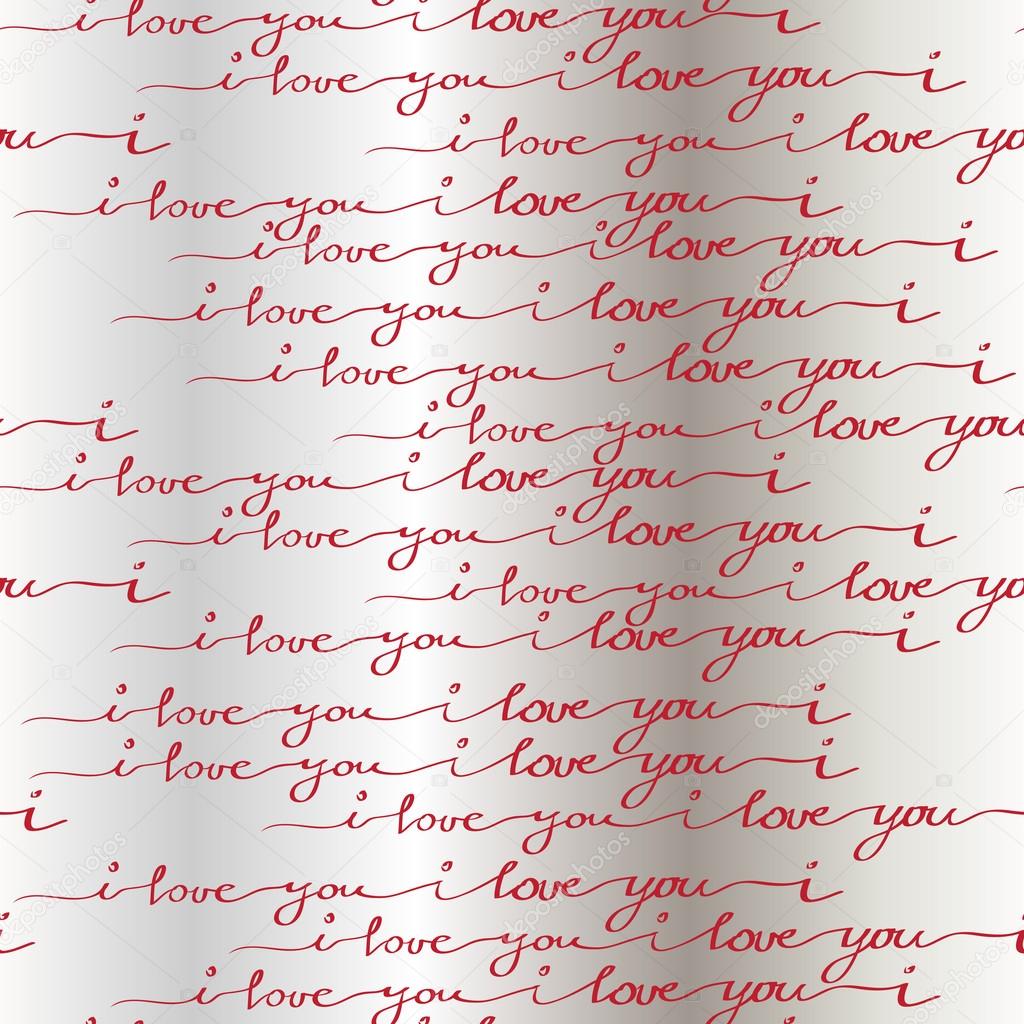 i love you i love you i
i love you i love you i
ou i i love you i love yo
i love you i love you i
i love you i love you i
i love you i love you i
i love you i love you i
i i love you i love you
i love you i love you i
i love you i love you i
ou i i love you i love yo
i love you i love you i
i love you i love you i
i love you i love you i
i i love you i love you
i love you i love you i
i i love you i love you i
i love you i love you i
depositphotos